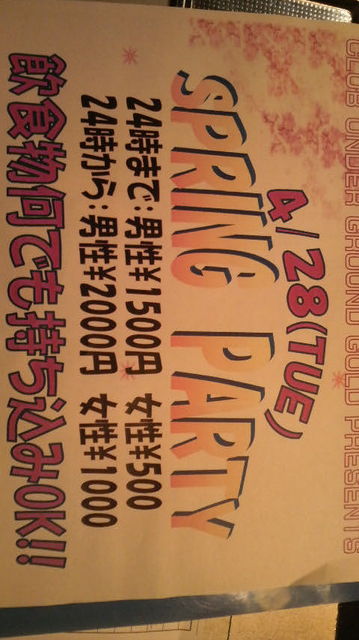 CLUB UNDER GROUND GOLD PRESENTS
4/28(TUE)
SPRING PARTY
24時まで:男性¥1500円 女性¥500
24時から:男性¥2000円 女性¥1000
飲食物何でも持ち込みOK!!